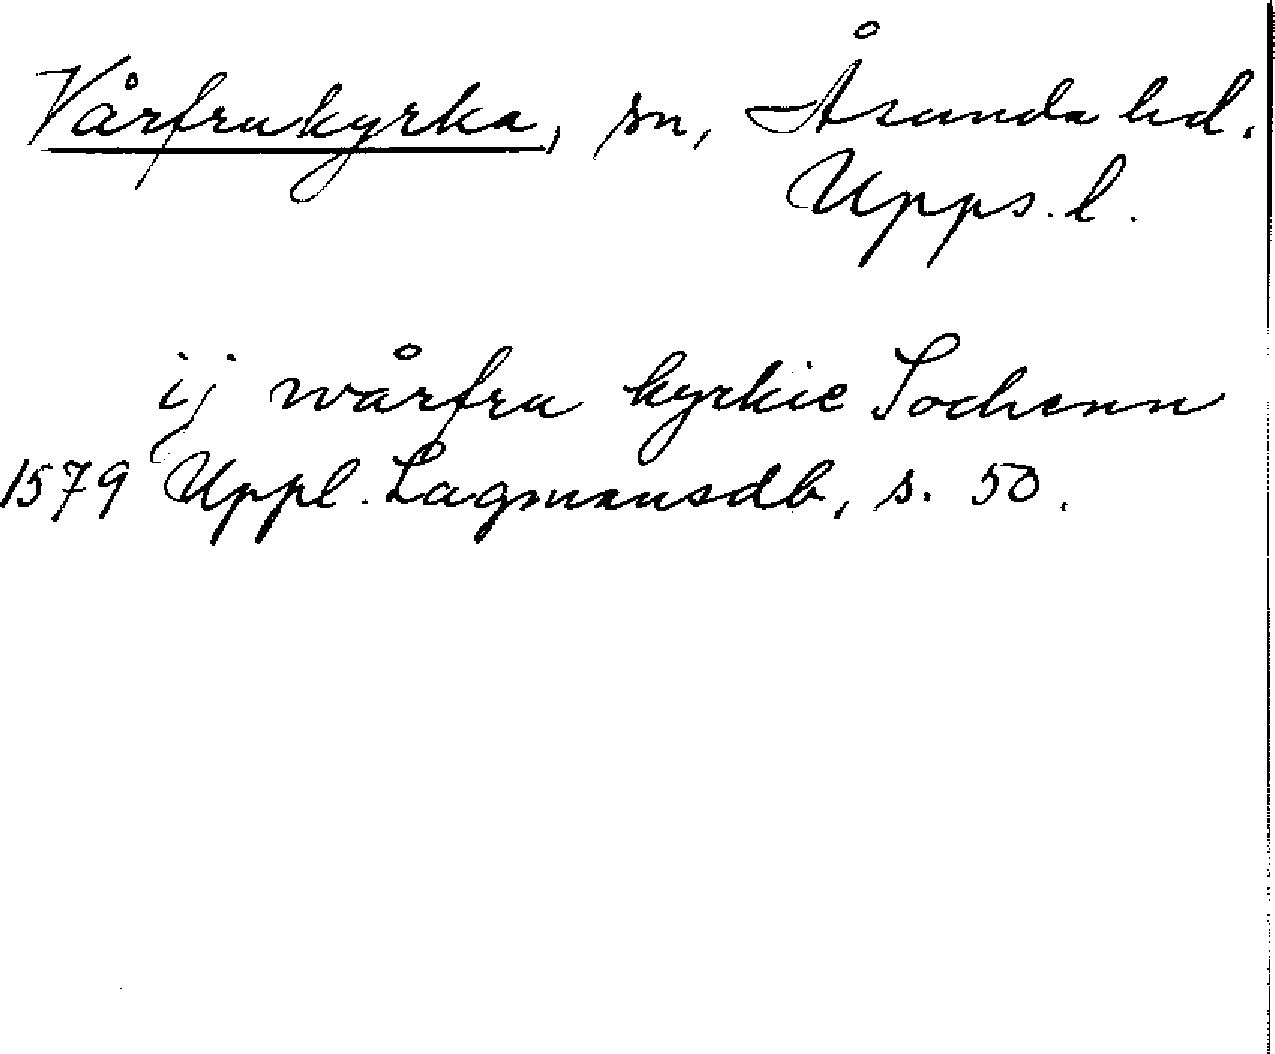 Vårfrukyrka, sn, Åsunda hd.
Upps. l.
ij wårfru kyrkie Sochenn
1579 Uppl. Lagmansdb, s. 50.